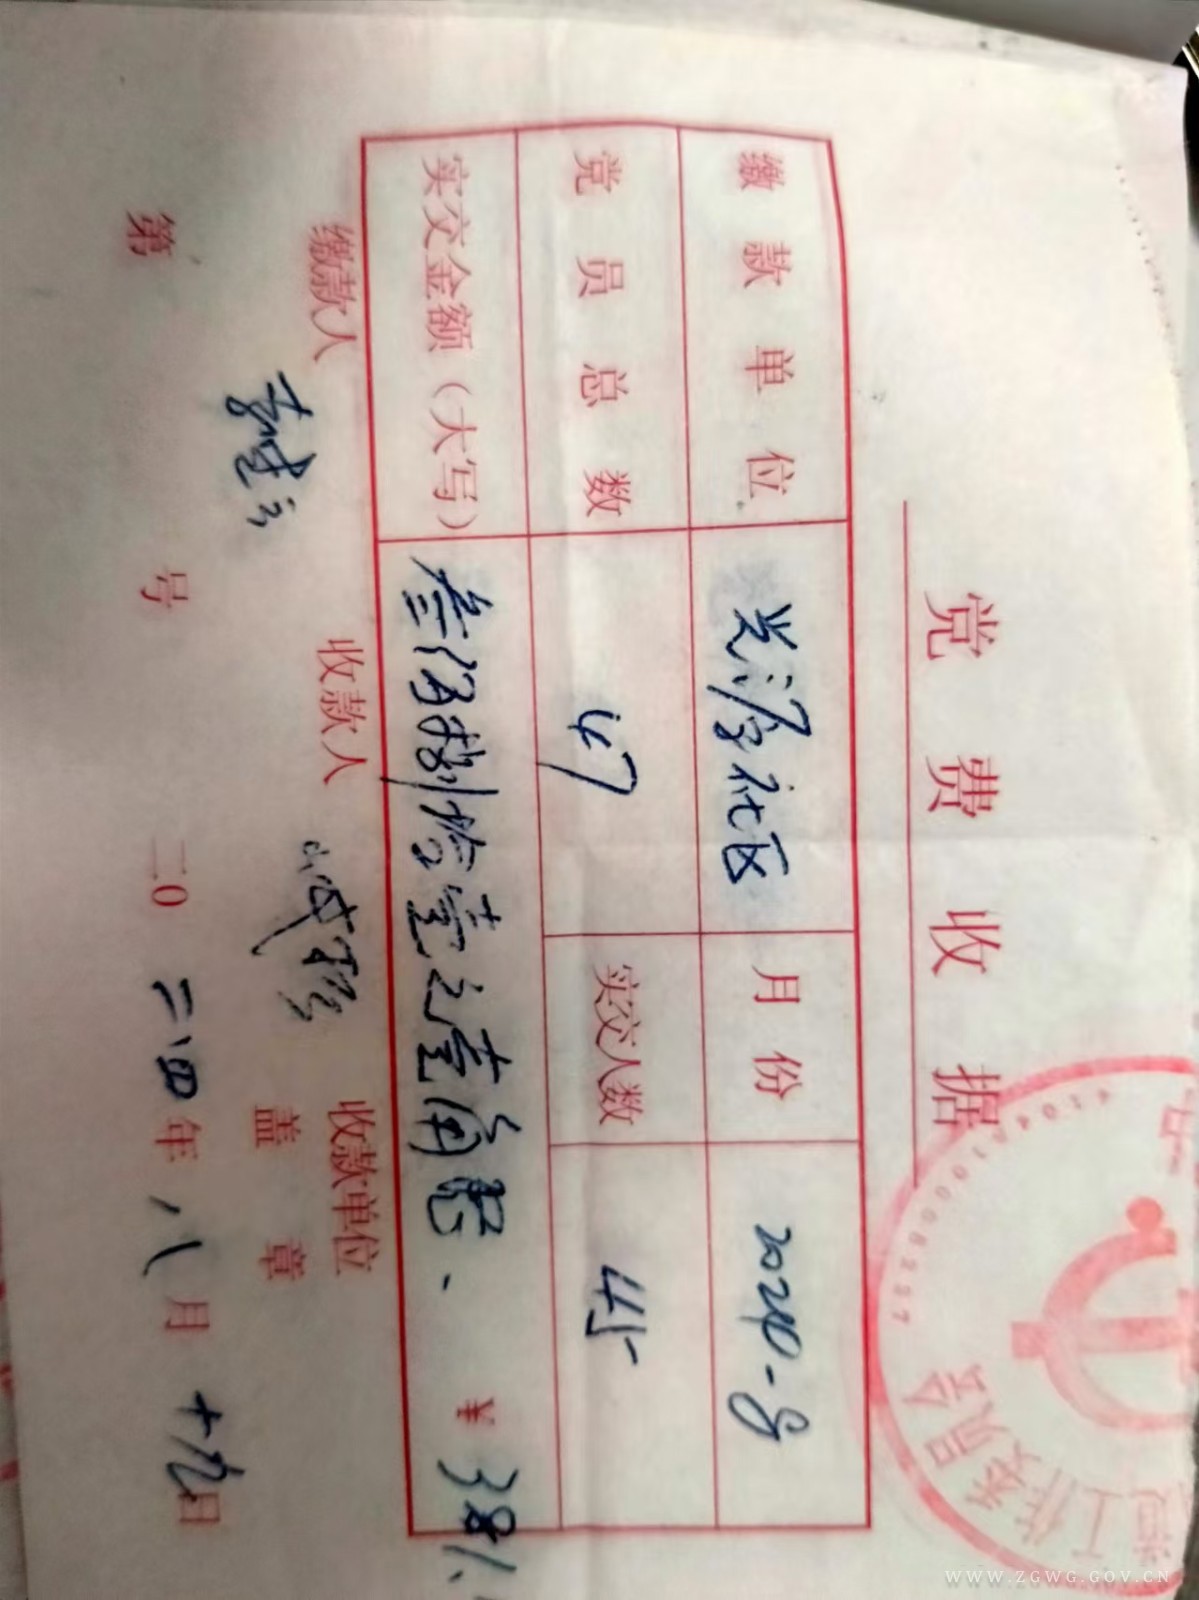 党费收据
缴款单位 兴源社区 月份 2024-8
党员总数 47 实交人数 45
实交金额（大写） 叁佰捌拾壹元壹角整、 ¥ 381.
缴款人 收款人 收款单位
盖章
第 号 二0二四年八月十九日
工作委员会
41042100062257
WWW.ZGWG.GOV.CN